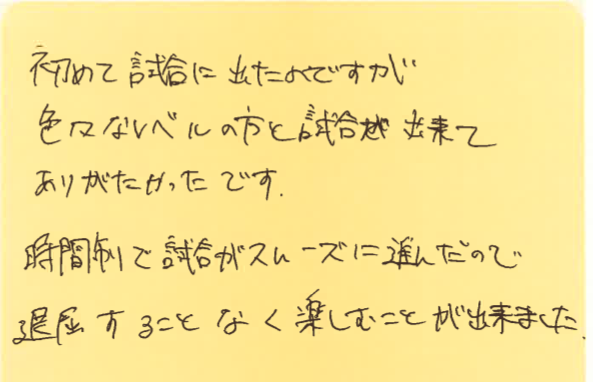 初めて試合に出たのですが
色々なレベルの方と試合が出来て
ありがたかったです.
時間制で試合がスムーズに進んだので
退屈することなく楽しむことが出来ました.